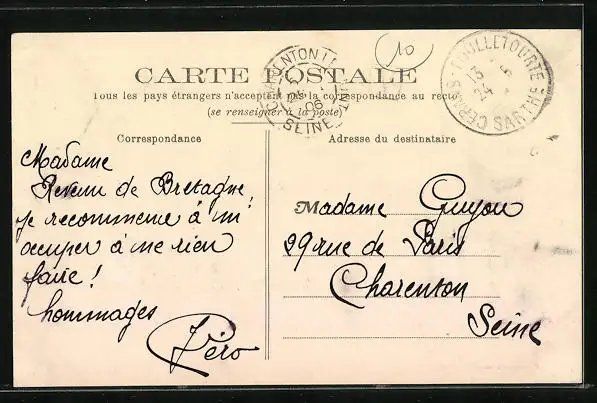 10
CHARENTON LE PONT
SEINE
06
FOUILLETOURTE
SARTHE
CARTE POSTALE
Tous les pays étrangers n'acceptent pas la correspondance au recto
(se renseigner à la poste)
Correspondance
Adresse du destinataire
Madame
Revenu de Bretagne,
je recommence à m'
occuper à ne rien
faire !
hommages
Péro
Madame Guyou
29 rue de Paris
Charenton
Seine